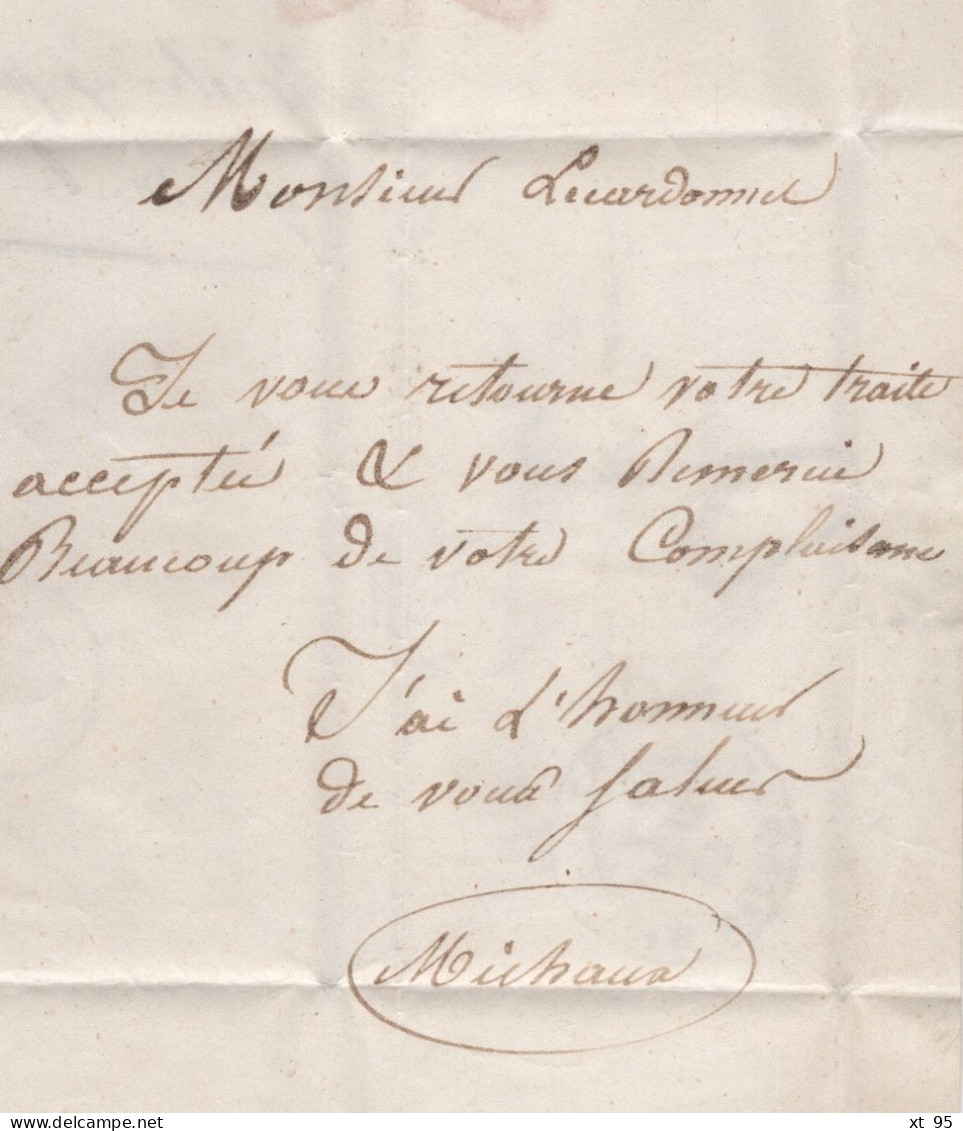 Monsieur Lecardonnel
Je vous retourne votre traite
acceptée & vous Remercie
Beaucoup de votre Complaisance
J'ai l'honneur
de vous saluer
Michaux
delcampe.net
xt 95